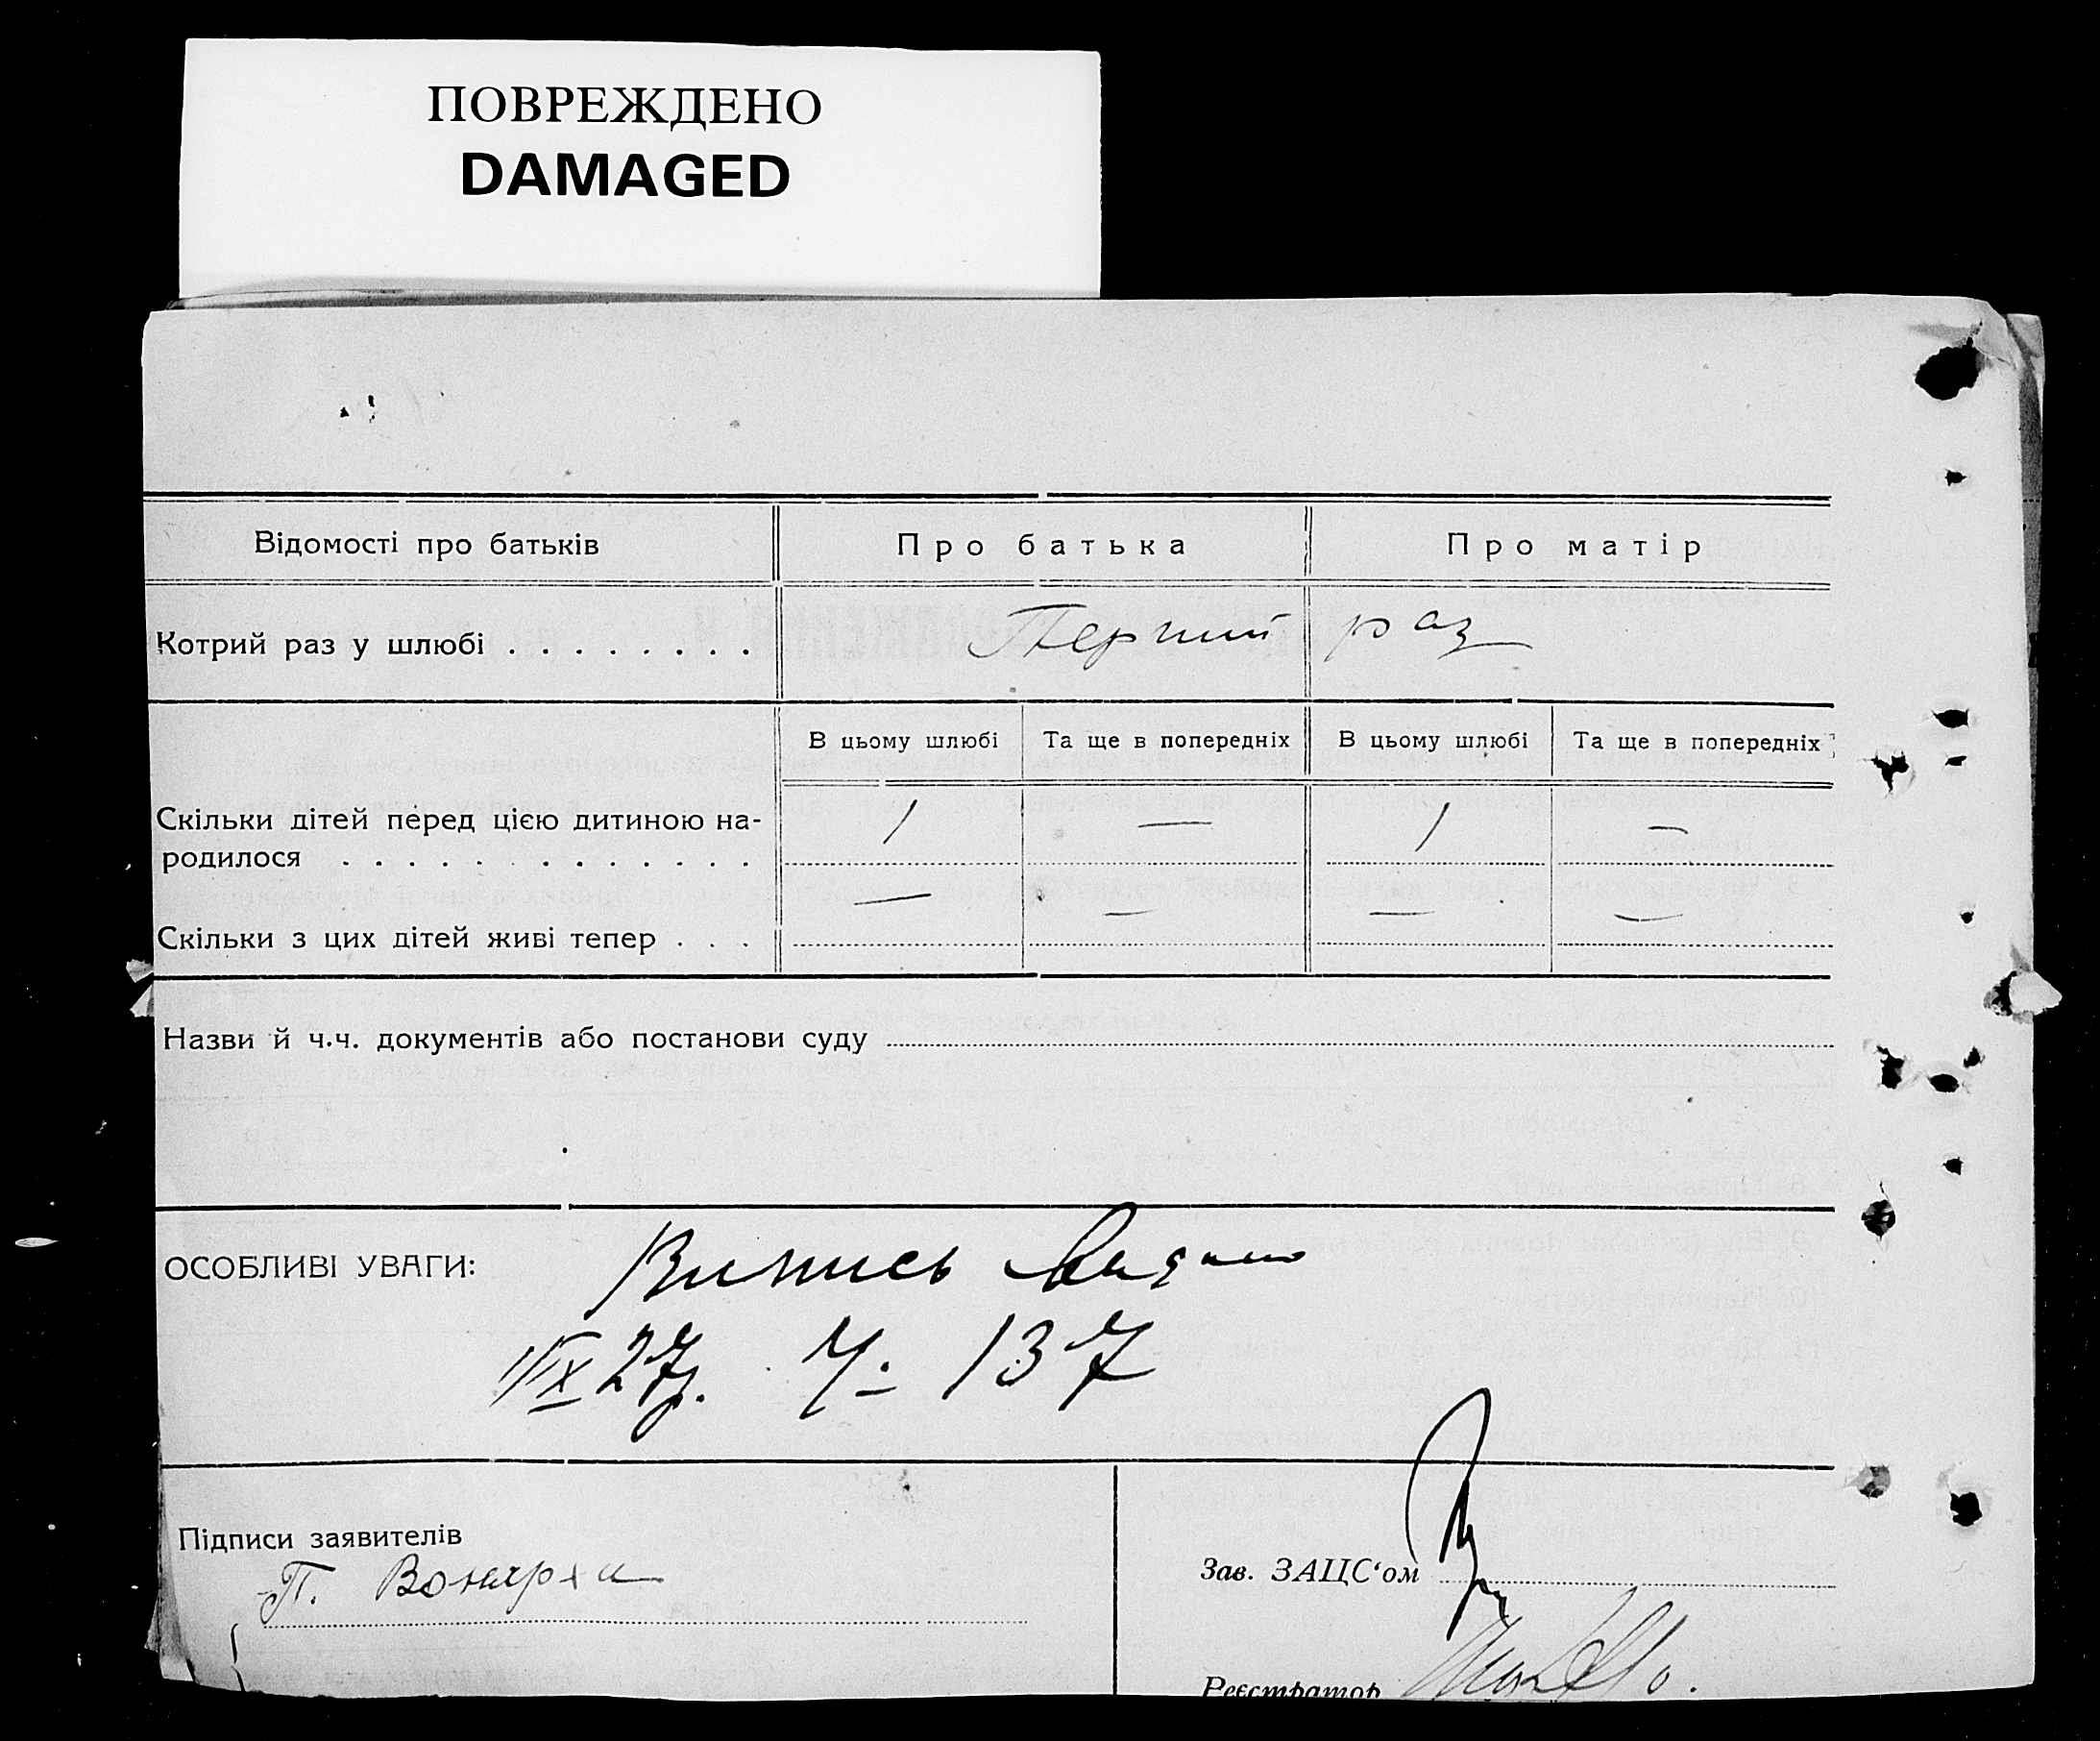 ПОВРЕЖДЕНО
DAMAGED
Відомості про батьків
Про батька
Про матір
Котрий раз у шлюбі . . . . . . . .
Перший раз
В цьому шлюбі
Та ще в попередніх
В цьому шлюбі
Та ще в попередніх
Скільки дітей перед цією дитиною на-
родилося . . . . . . . . . . . . .
1 — 1 —
Скільки з цих дітей живі тепер . . .
— — — —
Назви й ч.ч. документів або постанови суду
ОСОБЛИВІ УВАГИ:
Випись видано
1/IX 27р. Ч. 137
Підписи заявителів
П.
Зав. ЗАЦС'ом
Реєстратор